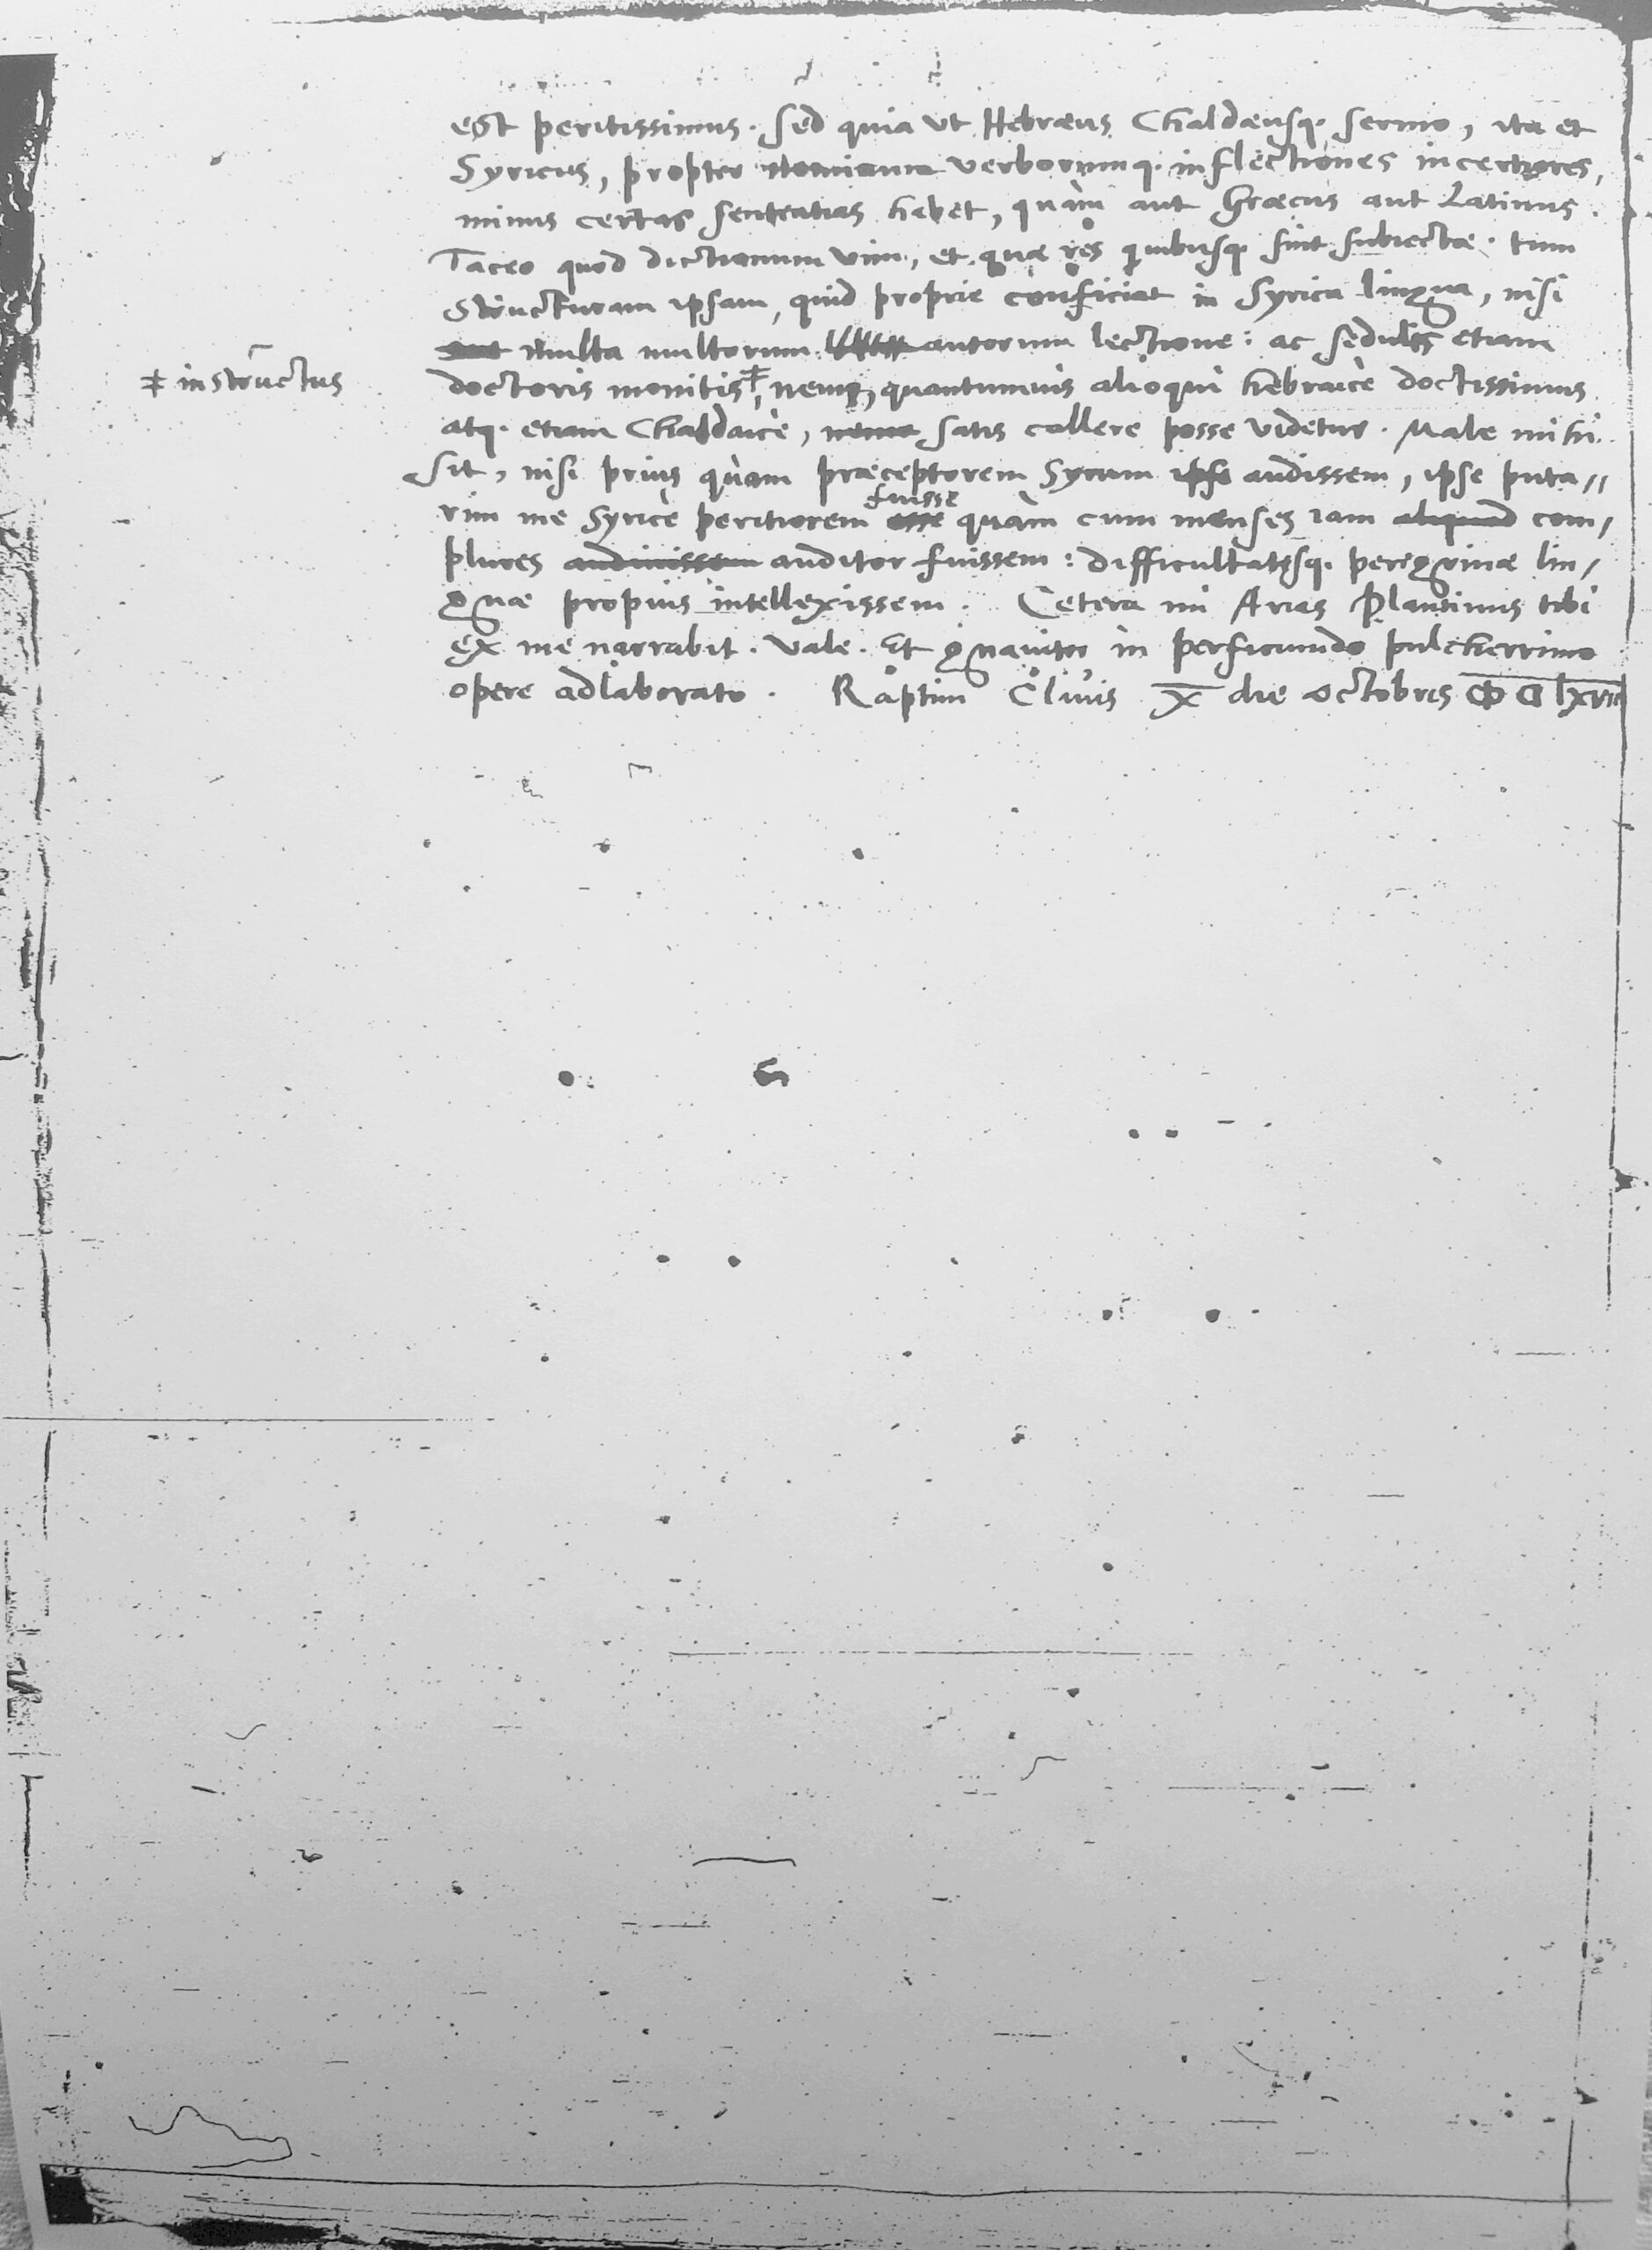 est peritissimus. sed quia ut Hebræus Chaldæusq. sermo, ita et
Syricus, propter nominum verborumq. inflectiones incertiores,
minus certas sententias habet, quàm aut Græcus aut Latinus.
Taceo quod dictionum vim, et quæ res quibusq. sint subiectæ. tum
structuram ipsam, quid proprie conficiat in Syrica lingua, nisi
aut multa multorum autorum lectione: ac sedulis etiam
‡ instructus
doctoris monitis‡, nemo, quantumuis alioqui hebraicè doctissimus
atq. etiam Chaldaicè, nemo satis callere posse videtur. Male mihi
sit, nisi prius quam præceptorem Syrum ipse audissem, ipse puta//
fuisse
rim me Syricè peritiorem esse quàm cum menses iam aliquod com/
plures audiuissem auditor fuissem: difficultatesq. peregrinæ lin/
guæ propius intellexissem. Cetera mi Arias Plantinus tibi
ex me narrabit. Vale. Et gnauiter in perficiundo pulcherrimo
opere adlaborato. Raptim Cliuis X die octobris